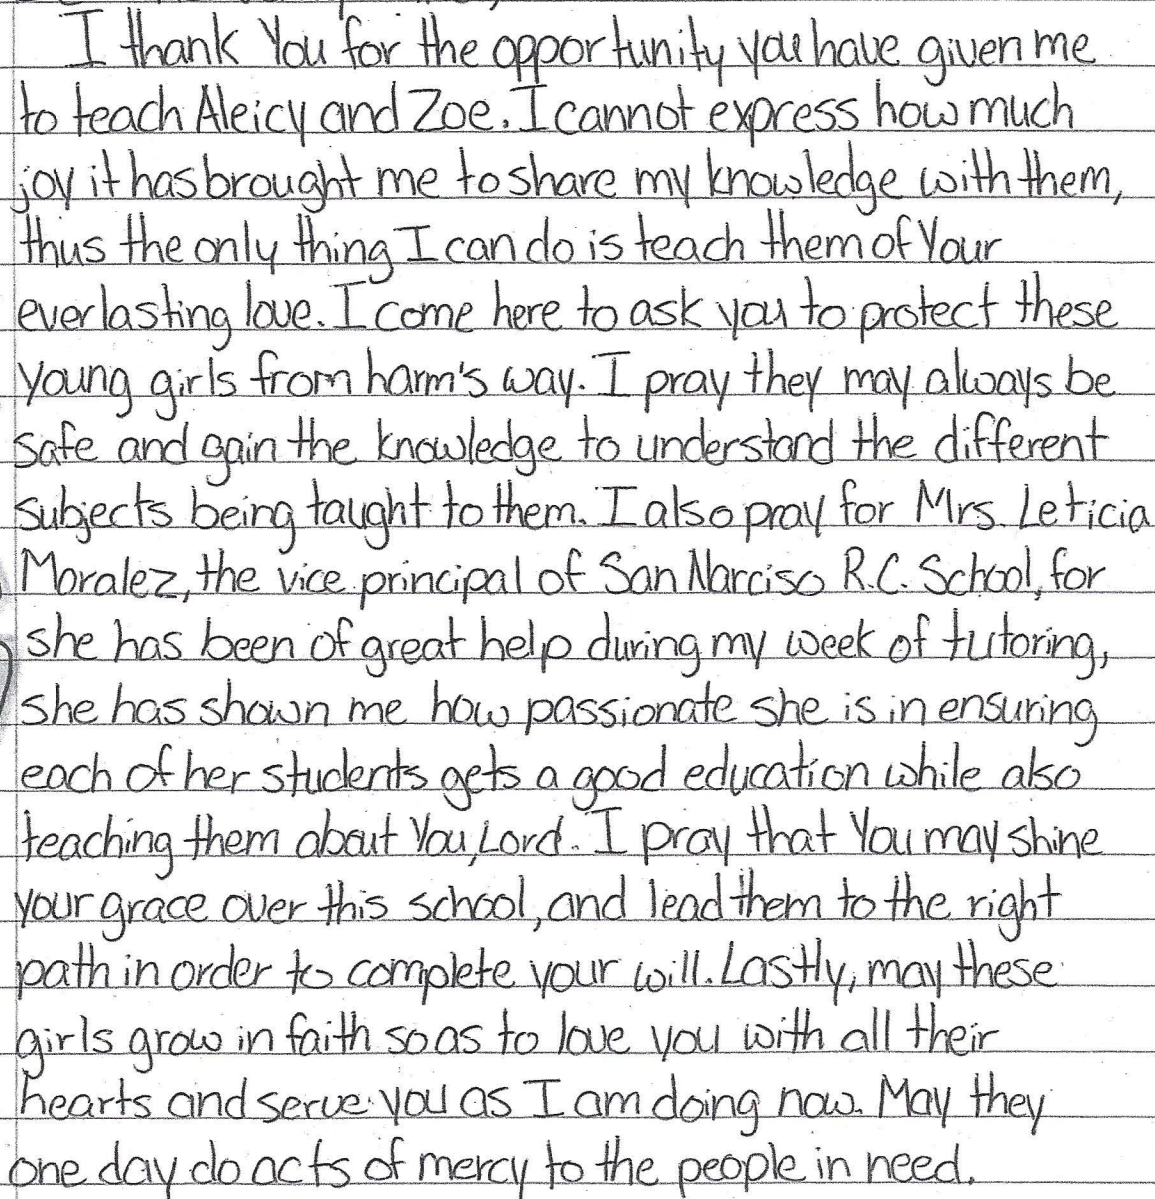 I thank You for the opportunity you have given me
to teach Aleicy and Zoe. I cannot express how much
joy it has brought me to share my knowledge with them,
thus the only thing I can do is teach them of Your
everlasting love. I come here to ask you to protect these
young girls from harm's way. I pray they may always be
safe and gain the knowledge to understand the different
subjects being taught to them. I also pray for Mrs. Leticia
Moralez, the vice principal of San Narciso R.C. School, for
she has been of great help during my week of tutoring,
she has shown me how passionate she is in ensuring
each of her students gets a good education while also
teaching them about You, Lord. I pray that You may shine
your grace over this school, and lead them to the right
path in order to complete your will. Lastly, may these
girls grow in faith so as to love you with all their
hearts and serve you as I am doing now. May they
one day do acts of mercy to the people in need.